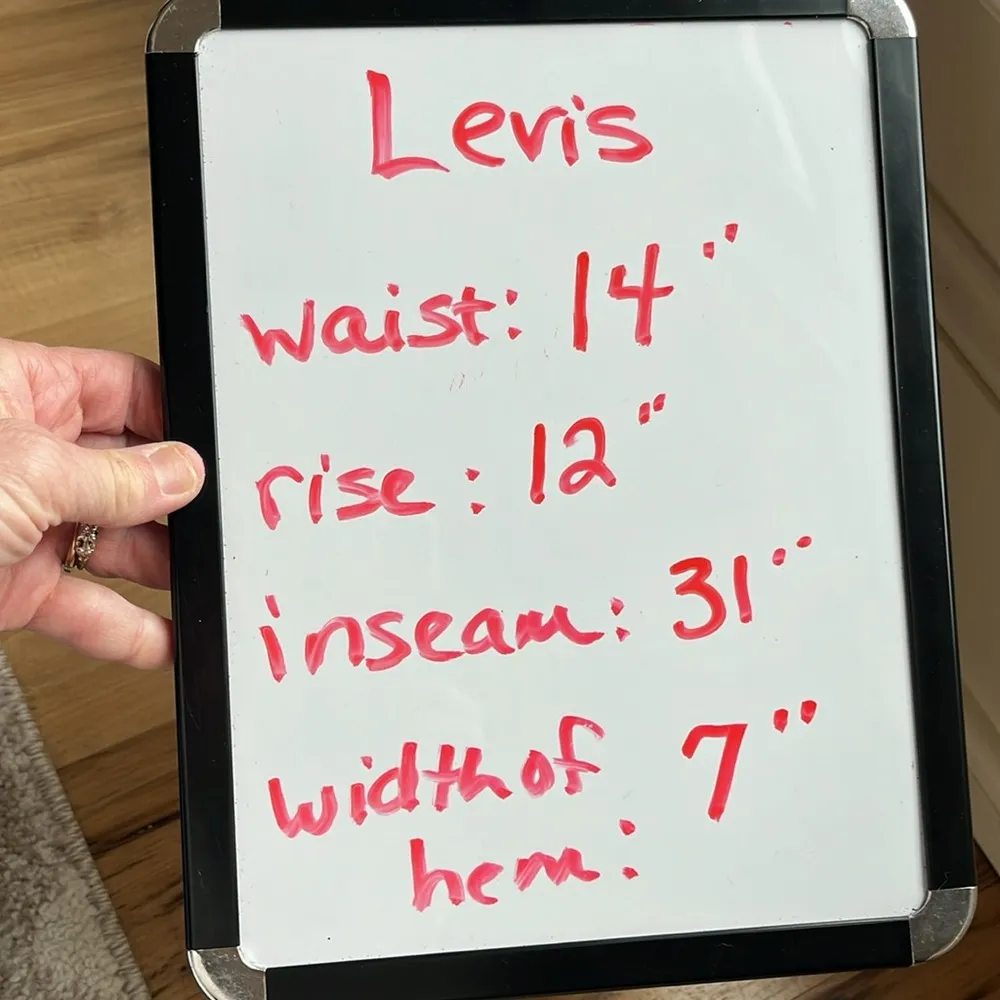 Levis
waist: 14"
rise: 12"
inseam: 31"
width of 7"
hem: